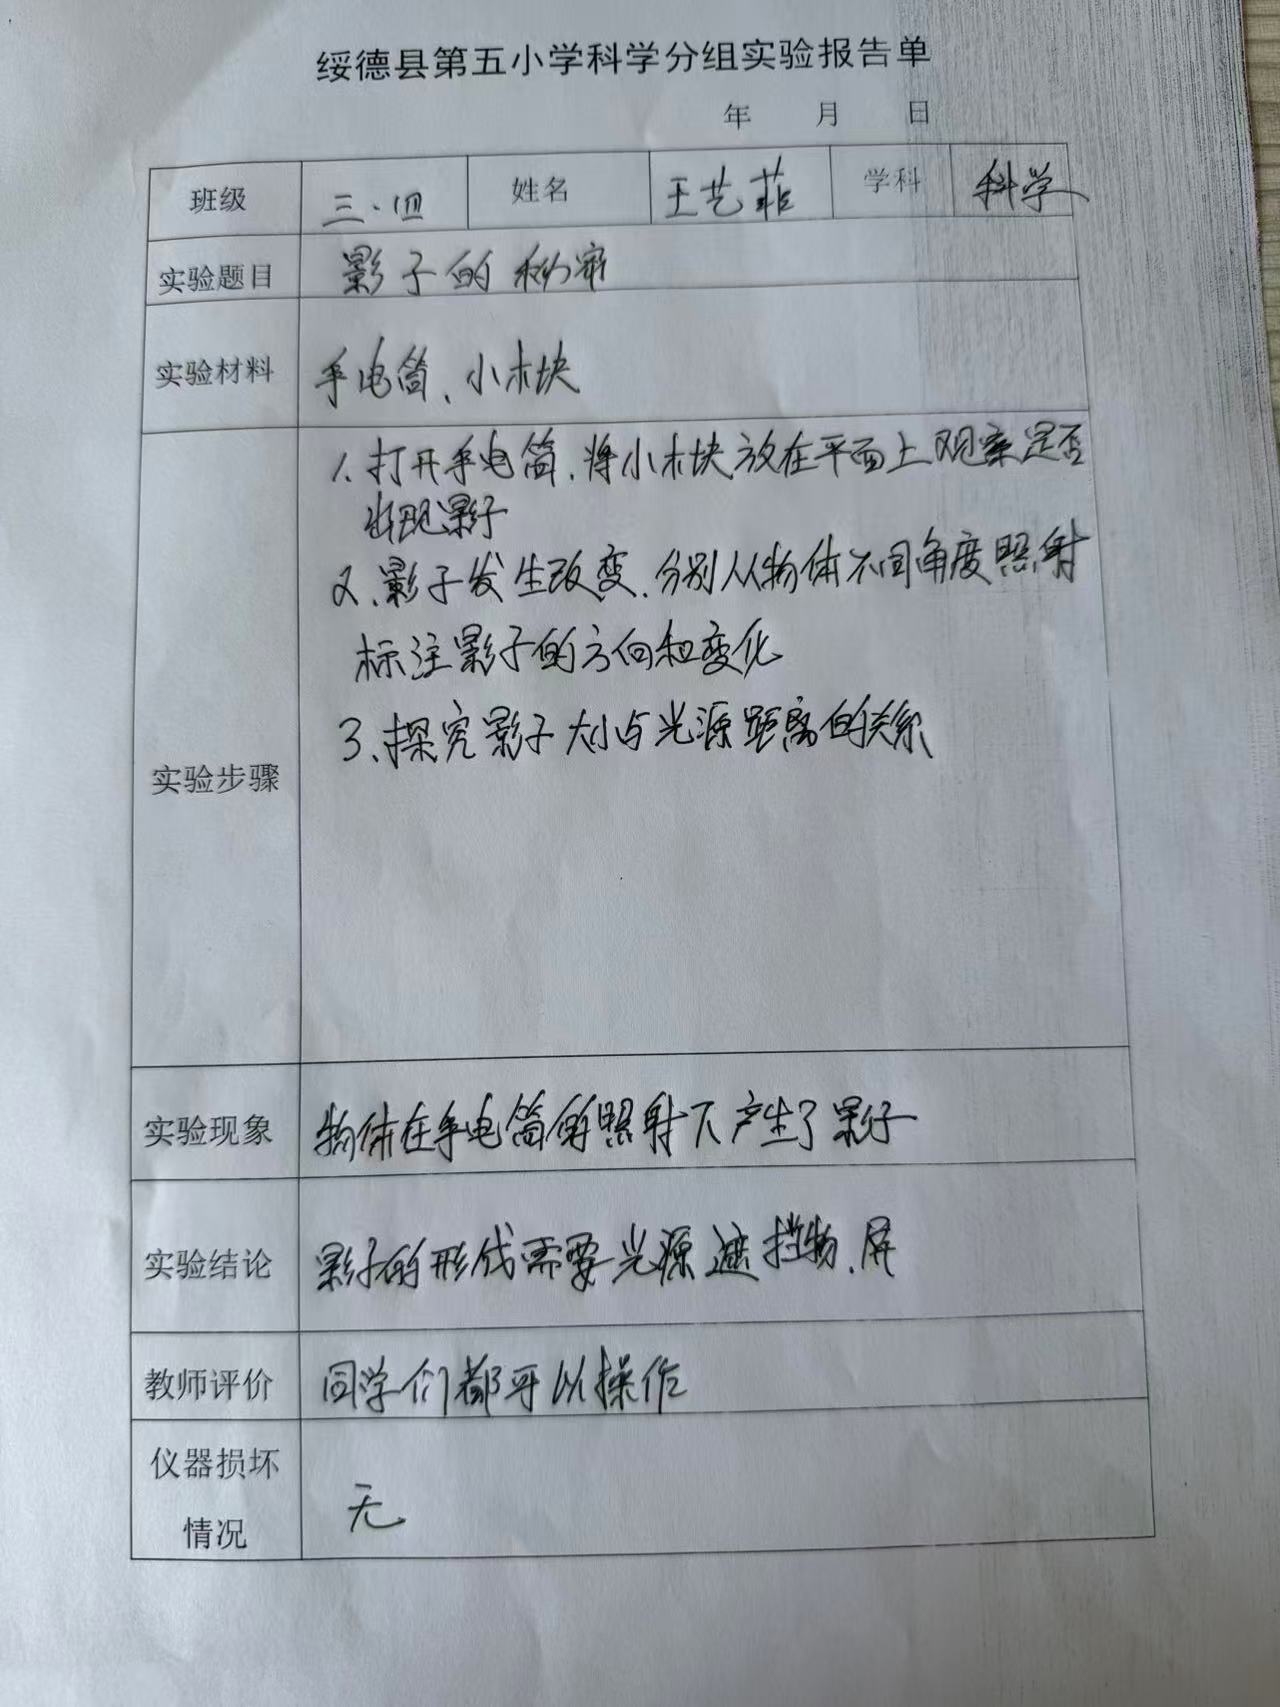 绥德县第五小学科学分组实验报告单
年 月 日
班级 三.四 姓名 王艺菲 学科 科学
实验题目 影子的秘密
实验材料 手电筒、小木块
1、打开手电筒,将小木块放在平面上观察是否
出现影子
2、影子发生改变、分别从物体不同角度照射
标注影子的方向和变化
3、探究影子大小与光源距离的关系
实验步骤
实验现象 物体在手电筒的照射下产生了影子
实验结论 影子的形成需要光源遮挡物、屏
教师评价 同学们都可以操作
仪器损坏
情况 无